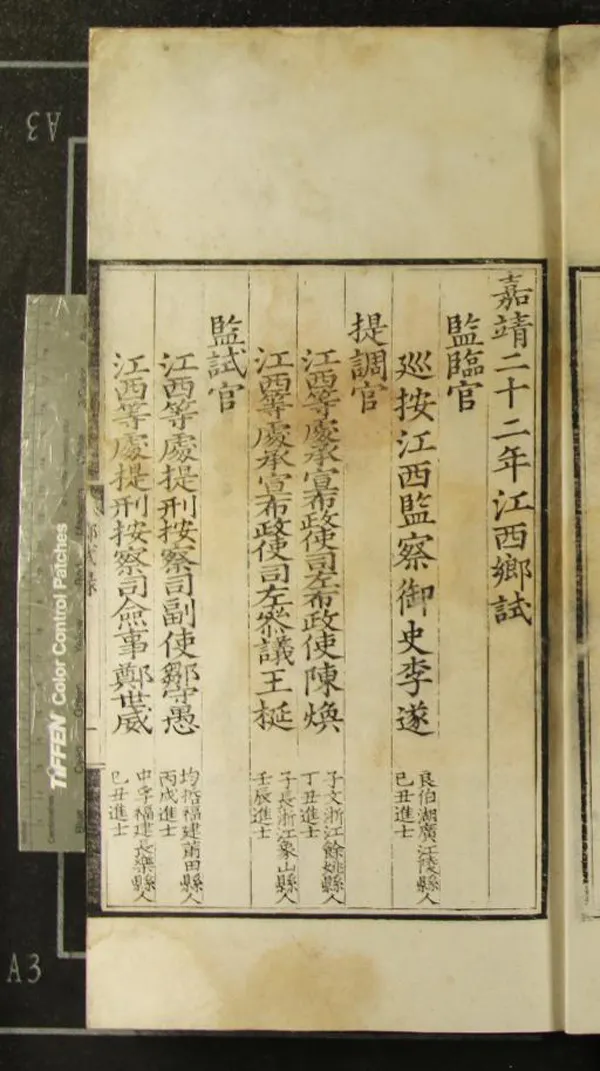 嘉靖二十二年江西鄉試
監臨官
廵按江西監察御史李遂
良伯湖廣江陵縣人
巳丑進士
提調官
江西等處承宣布政使司左布政使陳煥
子文浙江餘姚縣人
丁丑進士
江西等處承宣布政使司左叅議王梃
子長浙江象山縣人
壬辰進士
監試官
江西等處提刑按察司副使鄒守愚
均哲福建莆田縣人
丙戌進士
江西等處提刑按察司僉事鄭世威
中孚福建長樂縣人
巳丑進士
TIFFEN Color Control Patches
A3
A3